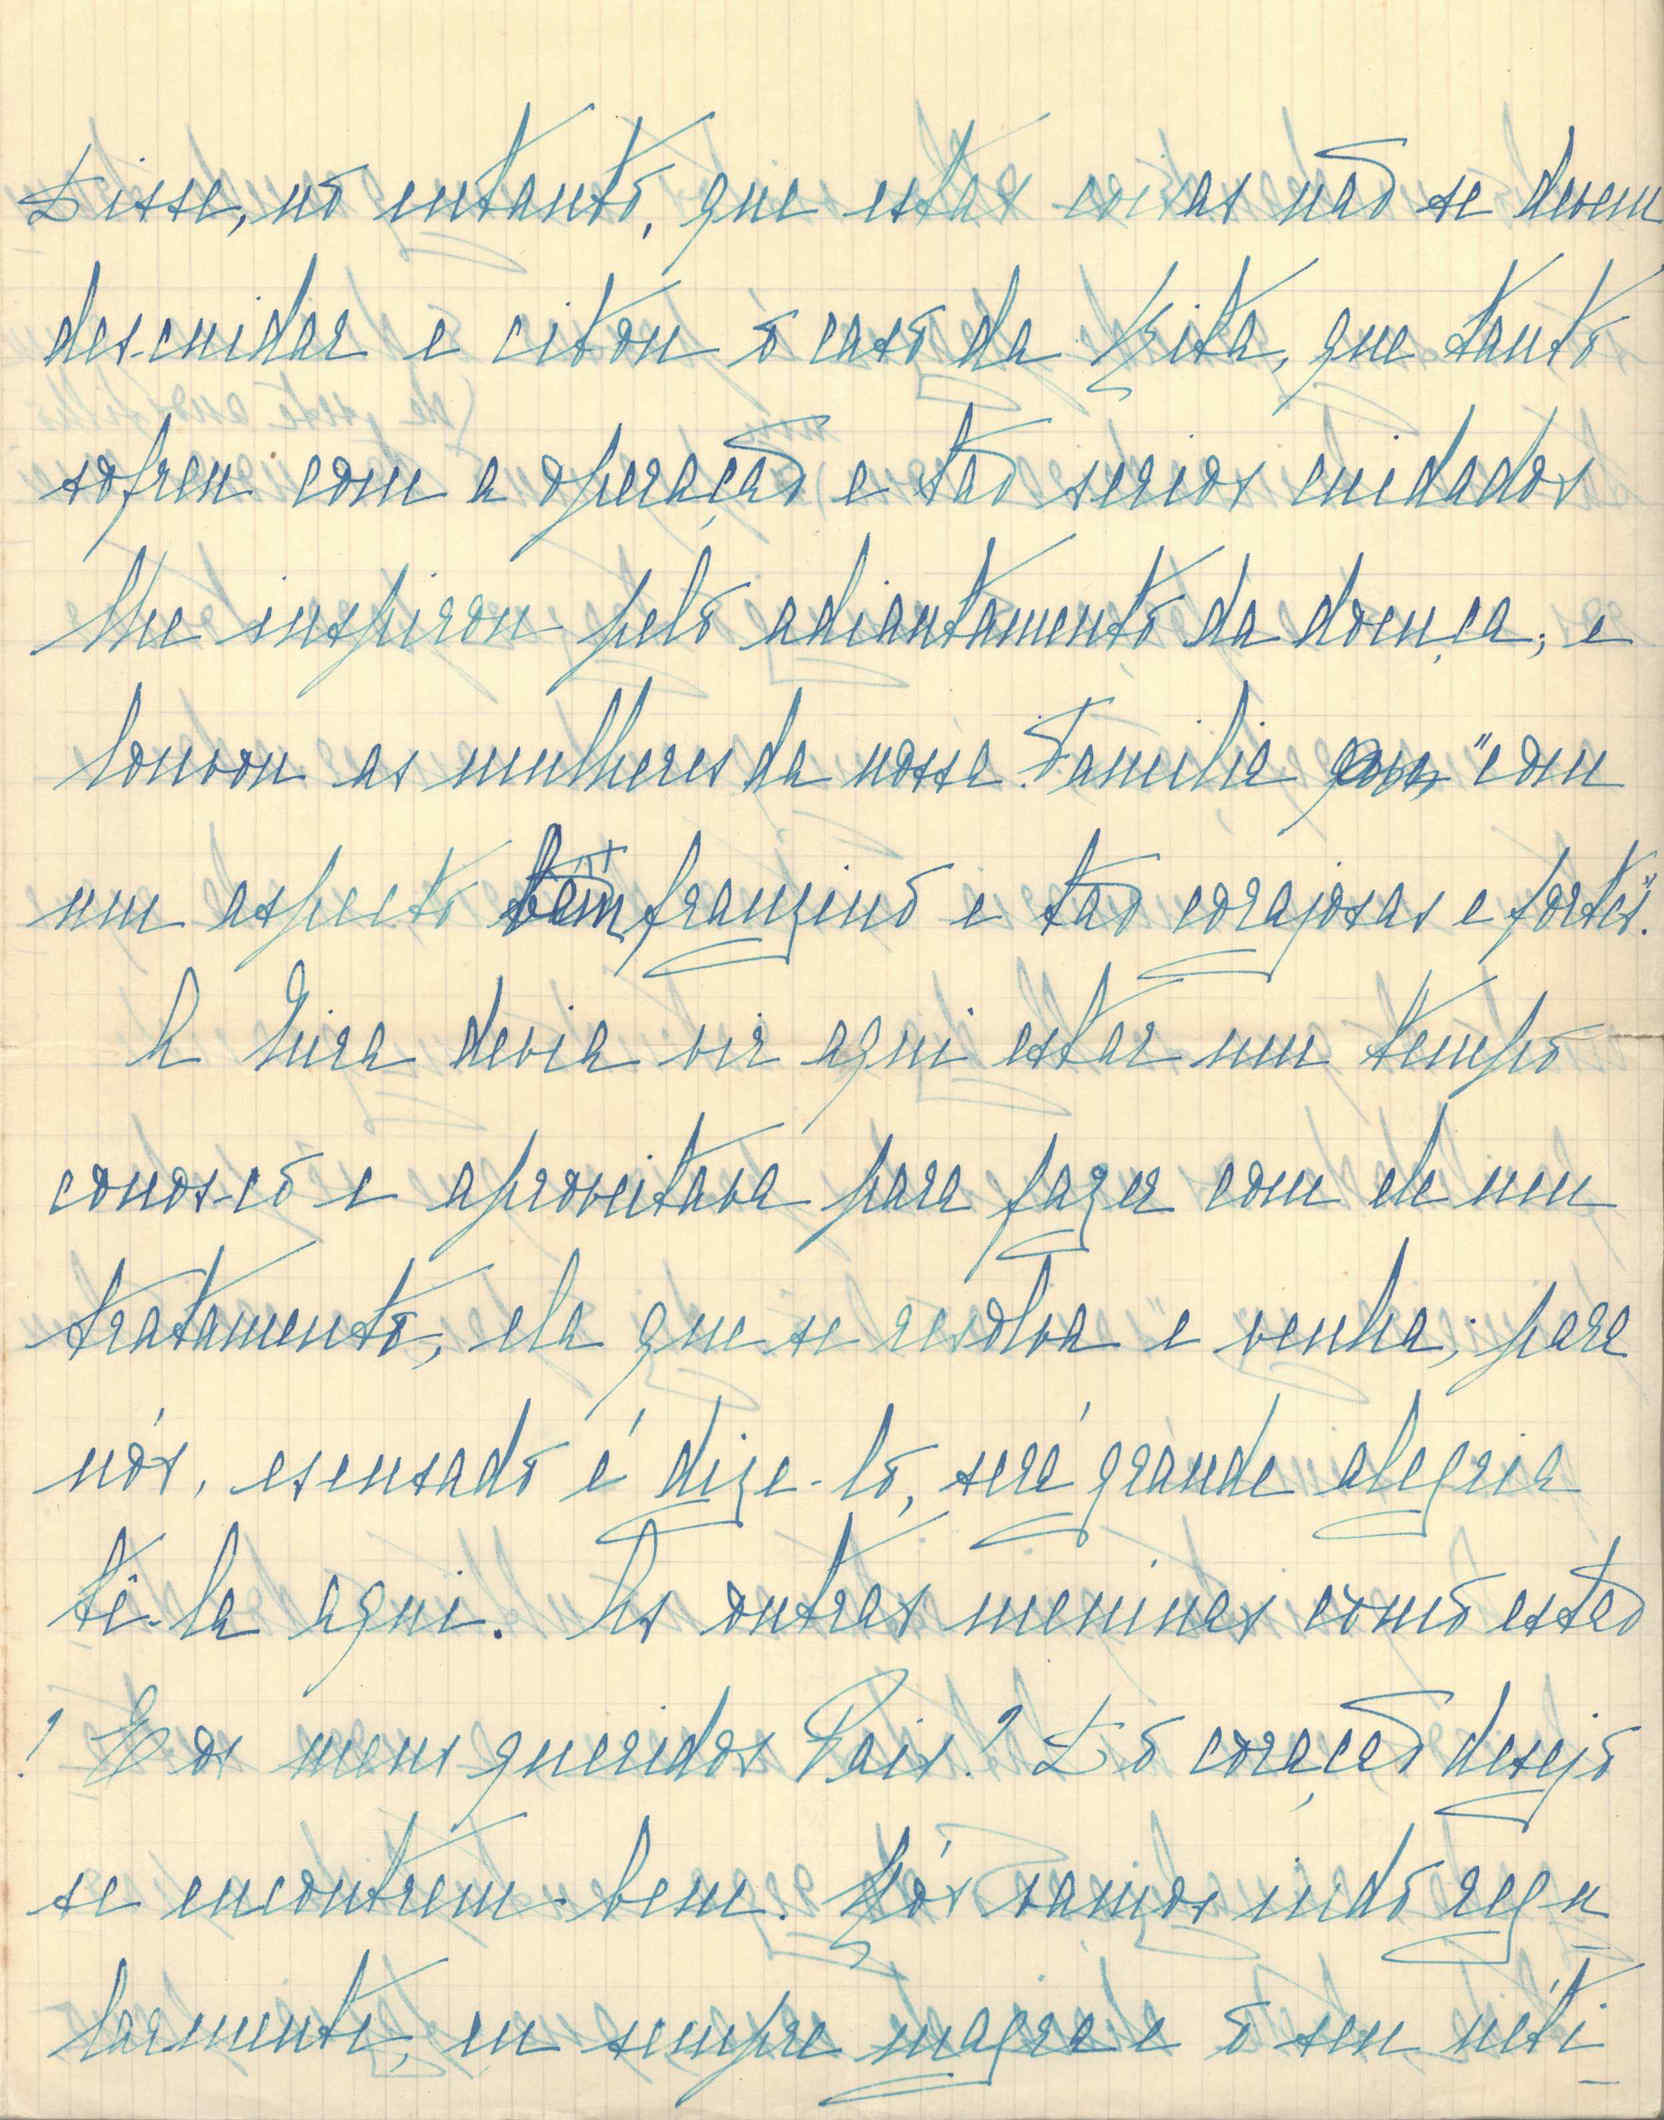 Disse, no entanto, que estas coisas não se devem
des-cuidar e citou o caso da Zita, que tanto
sofreu com a operação e tão serios cuidados
lhe inspirou pelo adiantamento da doença; e
louvou as mulheres da nossa Familia "com
um aspecto franzino e tão corajosas e fortes".
A Mira devia vir aqui estar um tempo
conos-co e aproveitava para fazer com ele um
tratamento; ela que se resolva e venha; para
nós, escusado é dize-lo, será grande alegria
tê-la aqui. As outras meninas como estão
? E os meus queridos Pais? Do coração desejo
se encontrem bem. Nós vamos indo regu
larmente, eu sempre magra e o seu néti